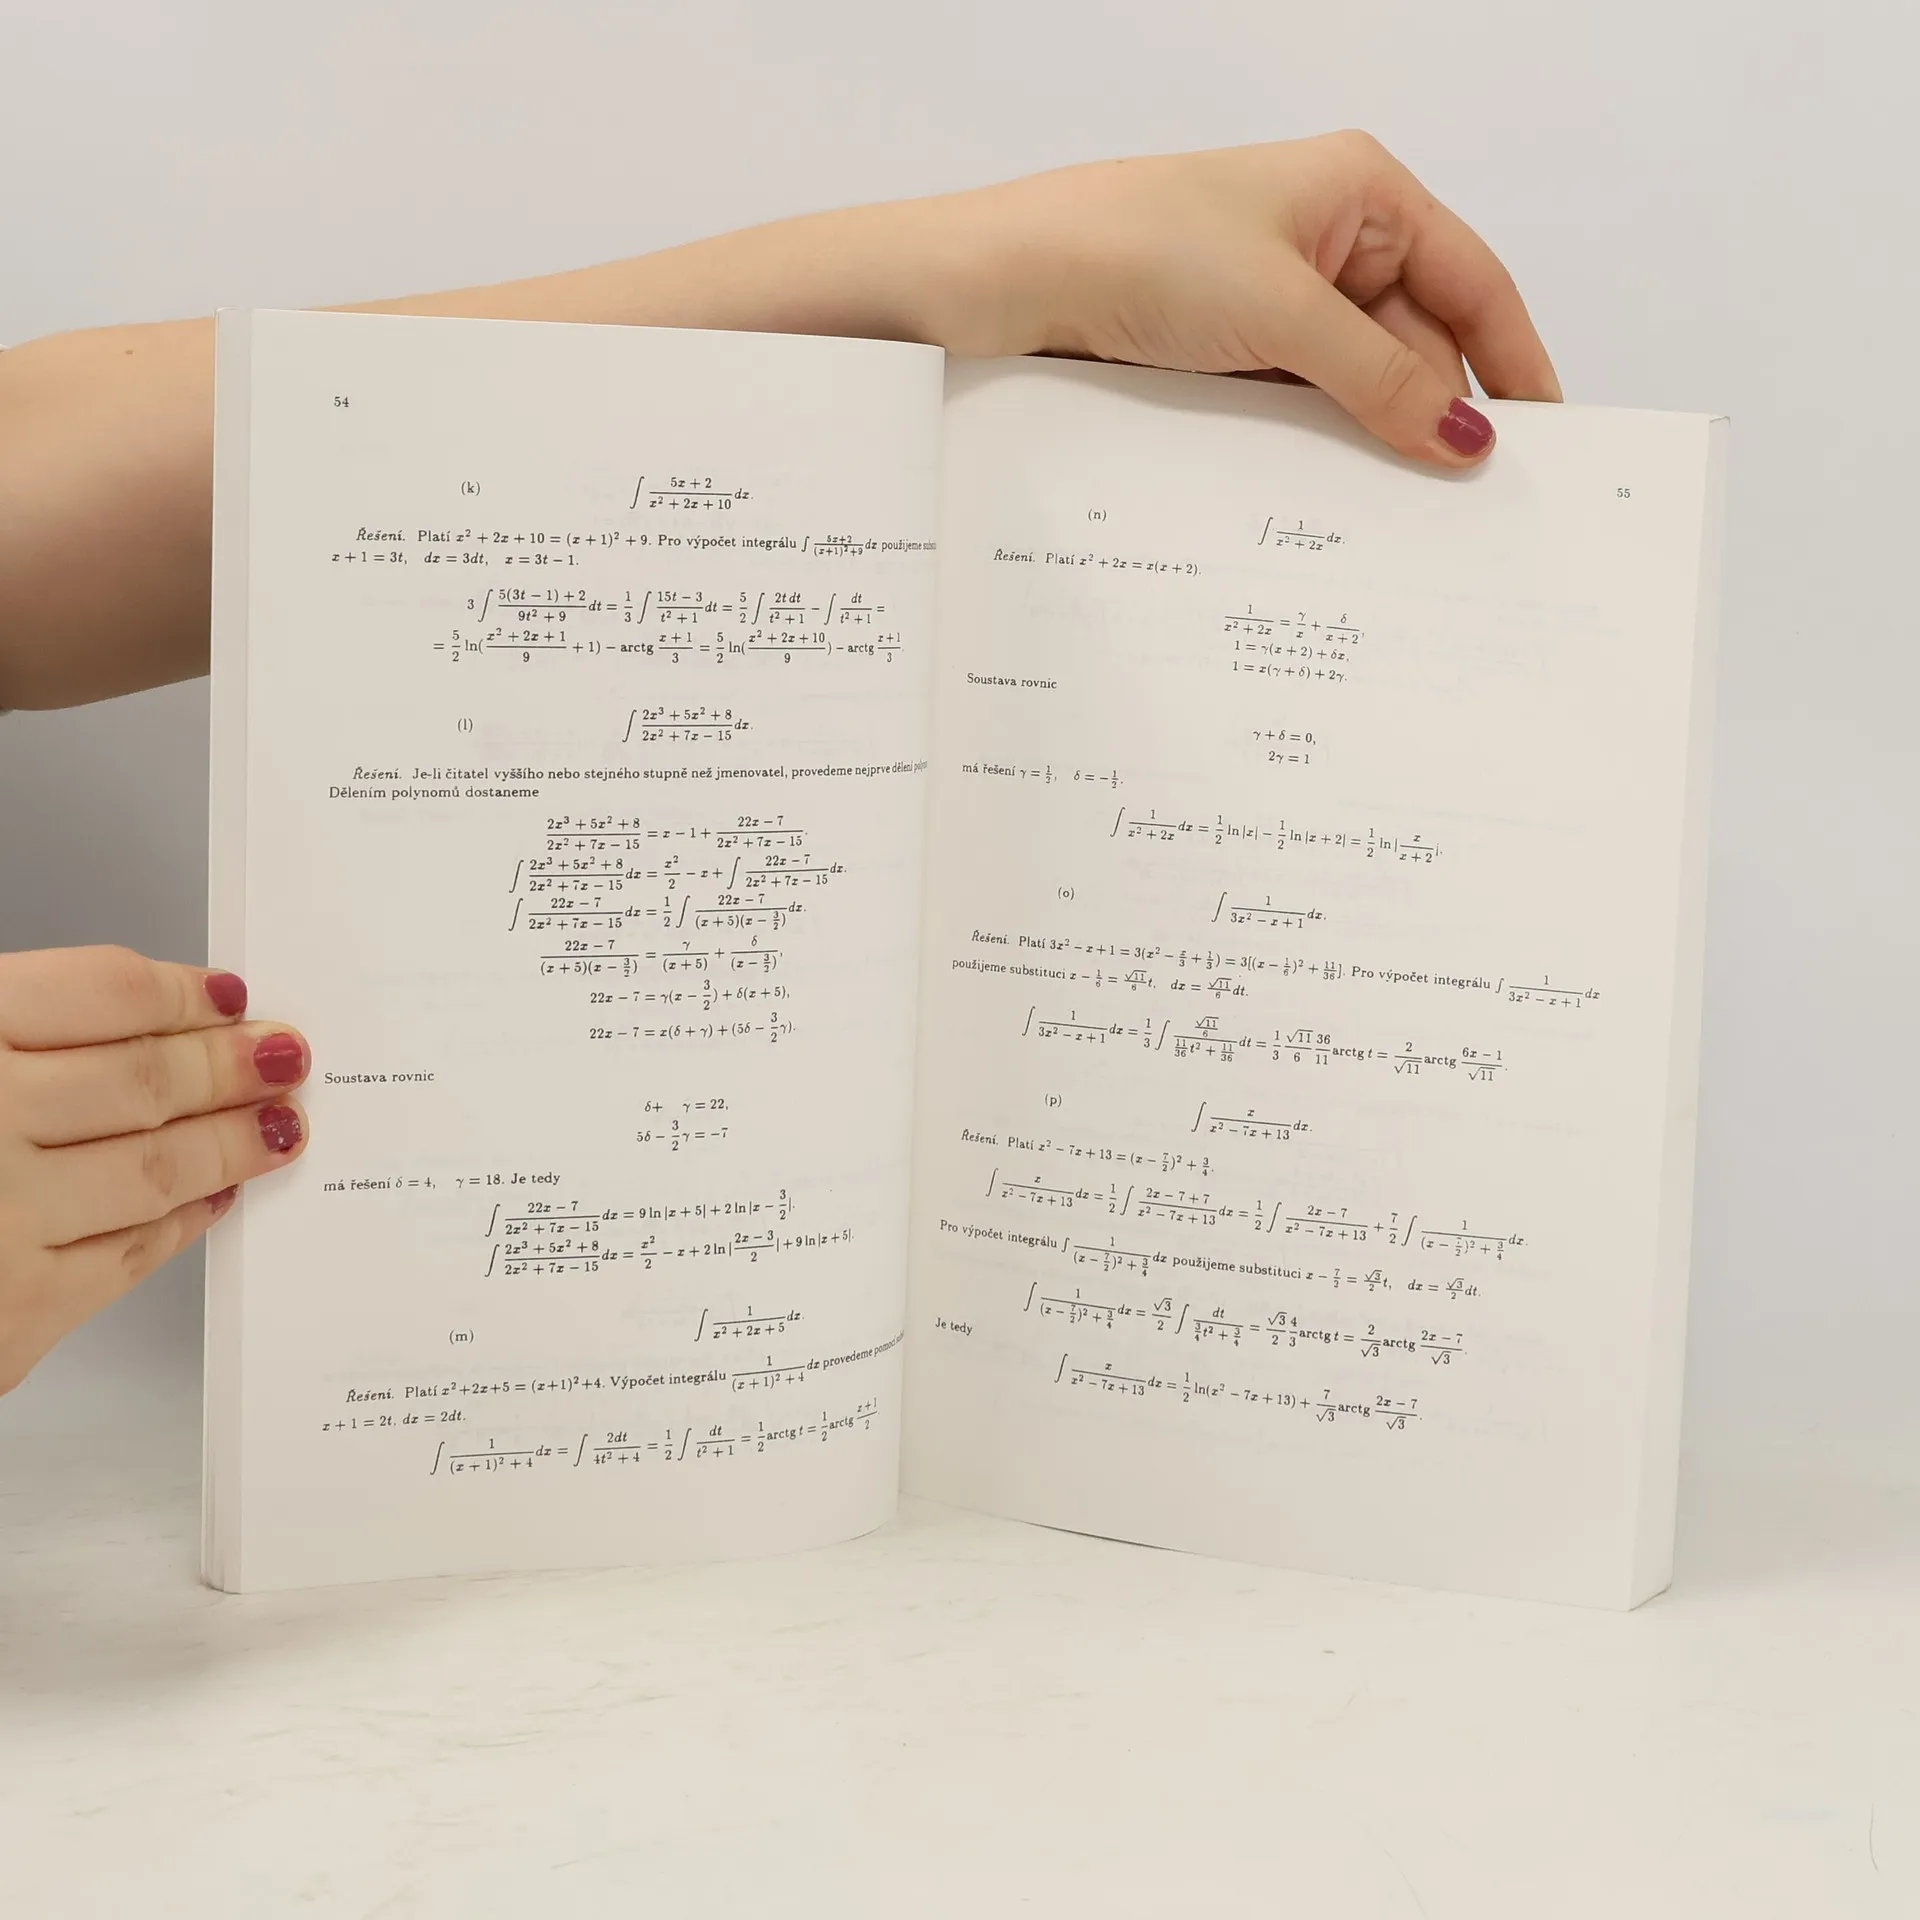 54
(k) ∫ (5x + 2)/(x² + 2x + 10) dx.
Řešení. Platí x² + 2x + 10 = (x + 1)² + 9. Pro výpočet integrálu ∫ (5x+2)/((x+1)²+9) dx použijeme
x + 1 = 3t, dx = 3dt, x = 3t − 1.
3 ∫ (5(3t − 1) + 2)/(9t² + 9) dt = 1/3 ∫ (15t − 3)/(t² + 1) dt = 5/2 ∫ (2t dt)/(t² + 1) − ∫ dt/(t² + 1) =
= 5/2 ln((x² + 2x + 1)/9 + 1) − arctg (x + 1)/3 = 5/2 ln((x² + 2x + 10)/9) − arctg (x+1)/3.
(l) ∫ (2x³ + 5x² + 8)/(2x² + 7x − 15) dx.
Řešení. Je-li čitatel vyššího nebo stejného stupně než jmenovatel, provedeme nejprve dělení
Dělením polynomů dostaneme
(2x³ + 5x² + 8)/(2x² + 7x − 15) = x − 1 + (22x − 7)/(2x² + 7x − 15).
∫ (2x³ + 5x² + 8)/(2x² + 7x − 15) dx = x²/2 − x + ∫ (22x − 7)/(2x² + 7x − 15) dx.
∫ (22x − 7)/(2x² + 7x − 15) dx = 1/2 ∫ (22x − 7)/((x + 5)(x − 3/2)) dx.
(22x − 7)/((x + 5)(x − 3/2)) = γ/(x + 5) + δ/(x − 3/2),
22x − 7 = γ(x − 3/2) + δ(x + 5),
22x − 7 = x(δ + γ) + (5δ − 3/2 γ).
Soustava rovnic
δ+ γ = 22,
5δ − 3/2 γ = −7
má řešení δ = 4, γ = 18. Je tedy
∫ (22x − 7)/(2x² + 7x − 15) dx = 9 ln |x + 5| + 2 ln |x − 3/2|.
∫ (2x³ + 5x² + 8)/(2x² + 7x − 15) dx = x²/2 − x + 2 ln |(2x − 3)/2| + 9 ln |x + 5|.
(m) ∫ 1/(x² + 2x + 5) dx.
Řešení. Platí x²+2x+5 = (x+1)²+4. Výpočet integrálu ∫ 1/((x + 1)² + 4) dx provedeme pomocí
x + 1 = 2t, dx = 2dt.
∫ 1/((x + 1)² + 4) dx = ∫ 2dt/(4t² + 4) = 1/2 ∫ dt/(t² + 1) = 1/2 arctg t = 1/2 arctg (x+1)/2
55
(n) ∫ 1/(x² + 2x) dx.
Řešení. Platí x² + 2x = x(x + 2).
1/(x² + 2x) = γ/x + δ/(x + 2),
1 = γ(x + 2) + δx,
1 = x(γ + δ) + 2γ.
Soustava rovnic
γ + δ = 0,
2γ = 1
má řešení γ = 1/2, δ = −1/2.
∫ 1/(x² + 2x) dx = 1/2 ln |x| − 1/2 ln |x + 2| = 1/2 ln |x/(x + 2)|.
(o) ∫ 1/(3x² − x + 1) dx.
Řešení. Platí 3x² − x + 1 = 3(x² − x/3 + 1/3) = 3[(x − 1/6)² + 11/36]. Pro výpočet integrálu ∫ 1/(3x² − x + 1) dx
použijeme substituci x − 1/6 = √11/6 t, dx = √11/6 dt.
∫ 1/(3x² − x + 1) dx = 1/3 ∫ (√11/6)/(11/36 t² + 11/36) dt = 1/3 √11/6 36/11 arctg t = 2/√11 arctg (6x − 1)/√11.
(p) ∫ x/(x² − 7x + 13) dx.
Řešení. Platí x² − 7x + 13 = (x − 7/2)² + 3/4.
∫ x/(x² − 7x + 13) dx = 1/2 ∫ (2x − 7 + 7)/(x² − 7x + 13) dx = 1/2 ∫ (2x − 7)/(x² − 7x + 13) + 7/2 ∫ 1/((x − 7/2)² + 3/4) dx.
Pro výpočet integrálu ∫ 1/((x − 7/2)² + 3/4) dx použijeme substituci x − 7/2 = √3/2 t, dx = √3/2 dt.
∫ 1/((x − 7/2)² + 3/4) dx = √3/2 ∫ dt/(3/4 t² + 3/4) = √3/2 4/3 arctg t = 2/√3 arctg (2x − 7)/√3.
Je tedy
∫ x/(x² − 7x + 13) dx = 1/2 ln(x² − 7x + 13) + 7/√3 arctg (2x − 7)/√3.